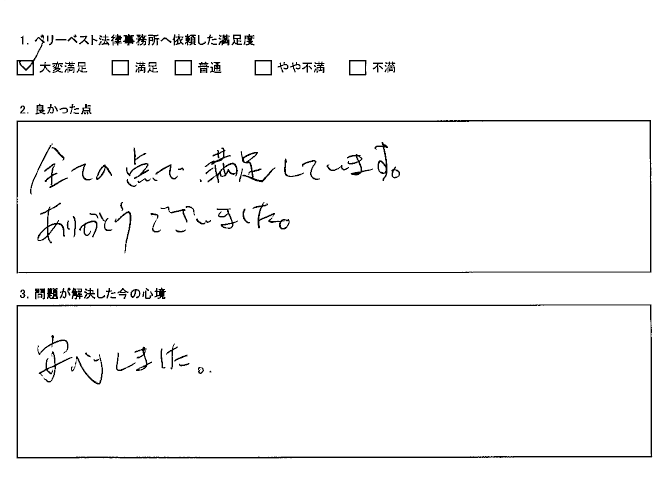 1. ベリーベスト法律事務所へ依頼した満足度
☑大変満足 □満足 □普通 □やや不満 □不満
2. 良かった点
全ての点で満足しています。
ありがとうございました。
3. 問題が解決した今の心境
安心しました。